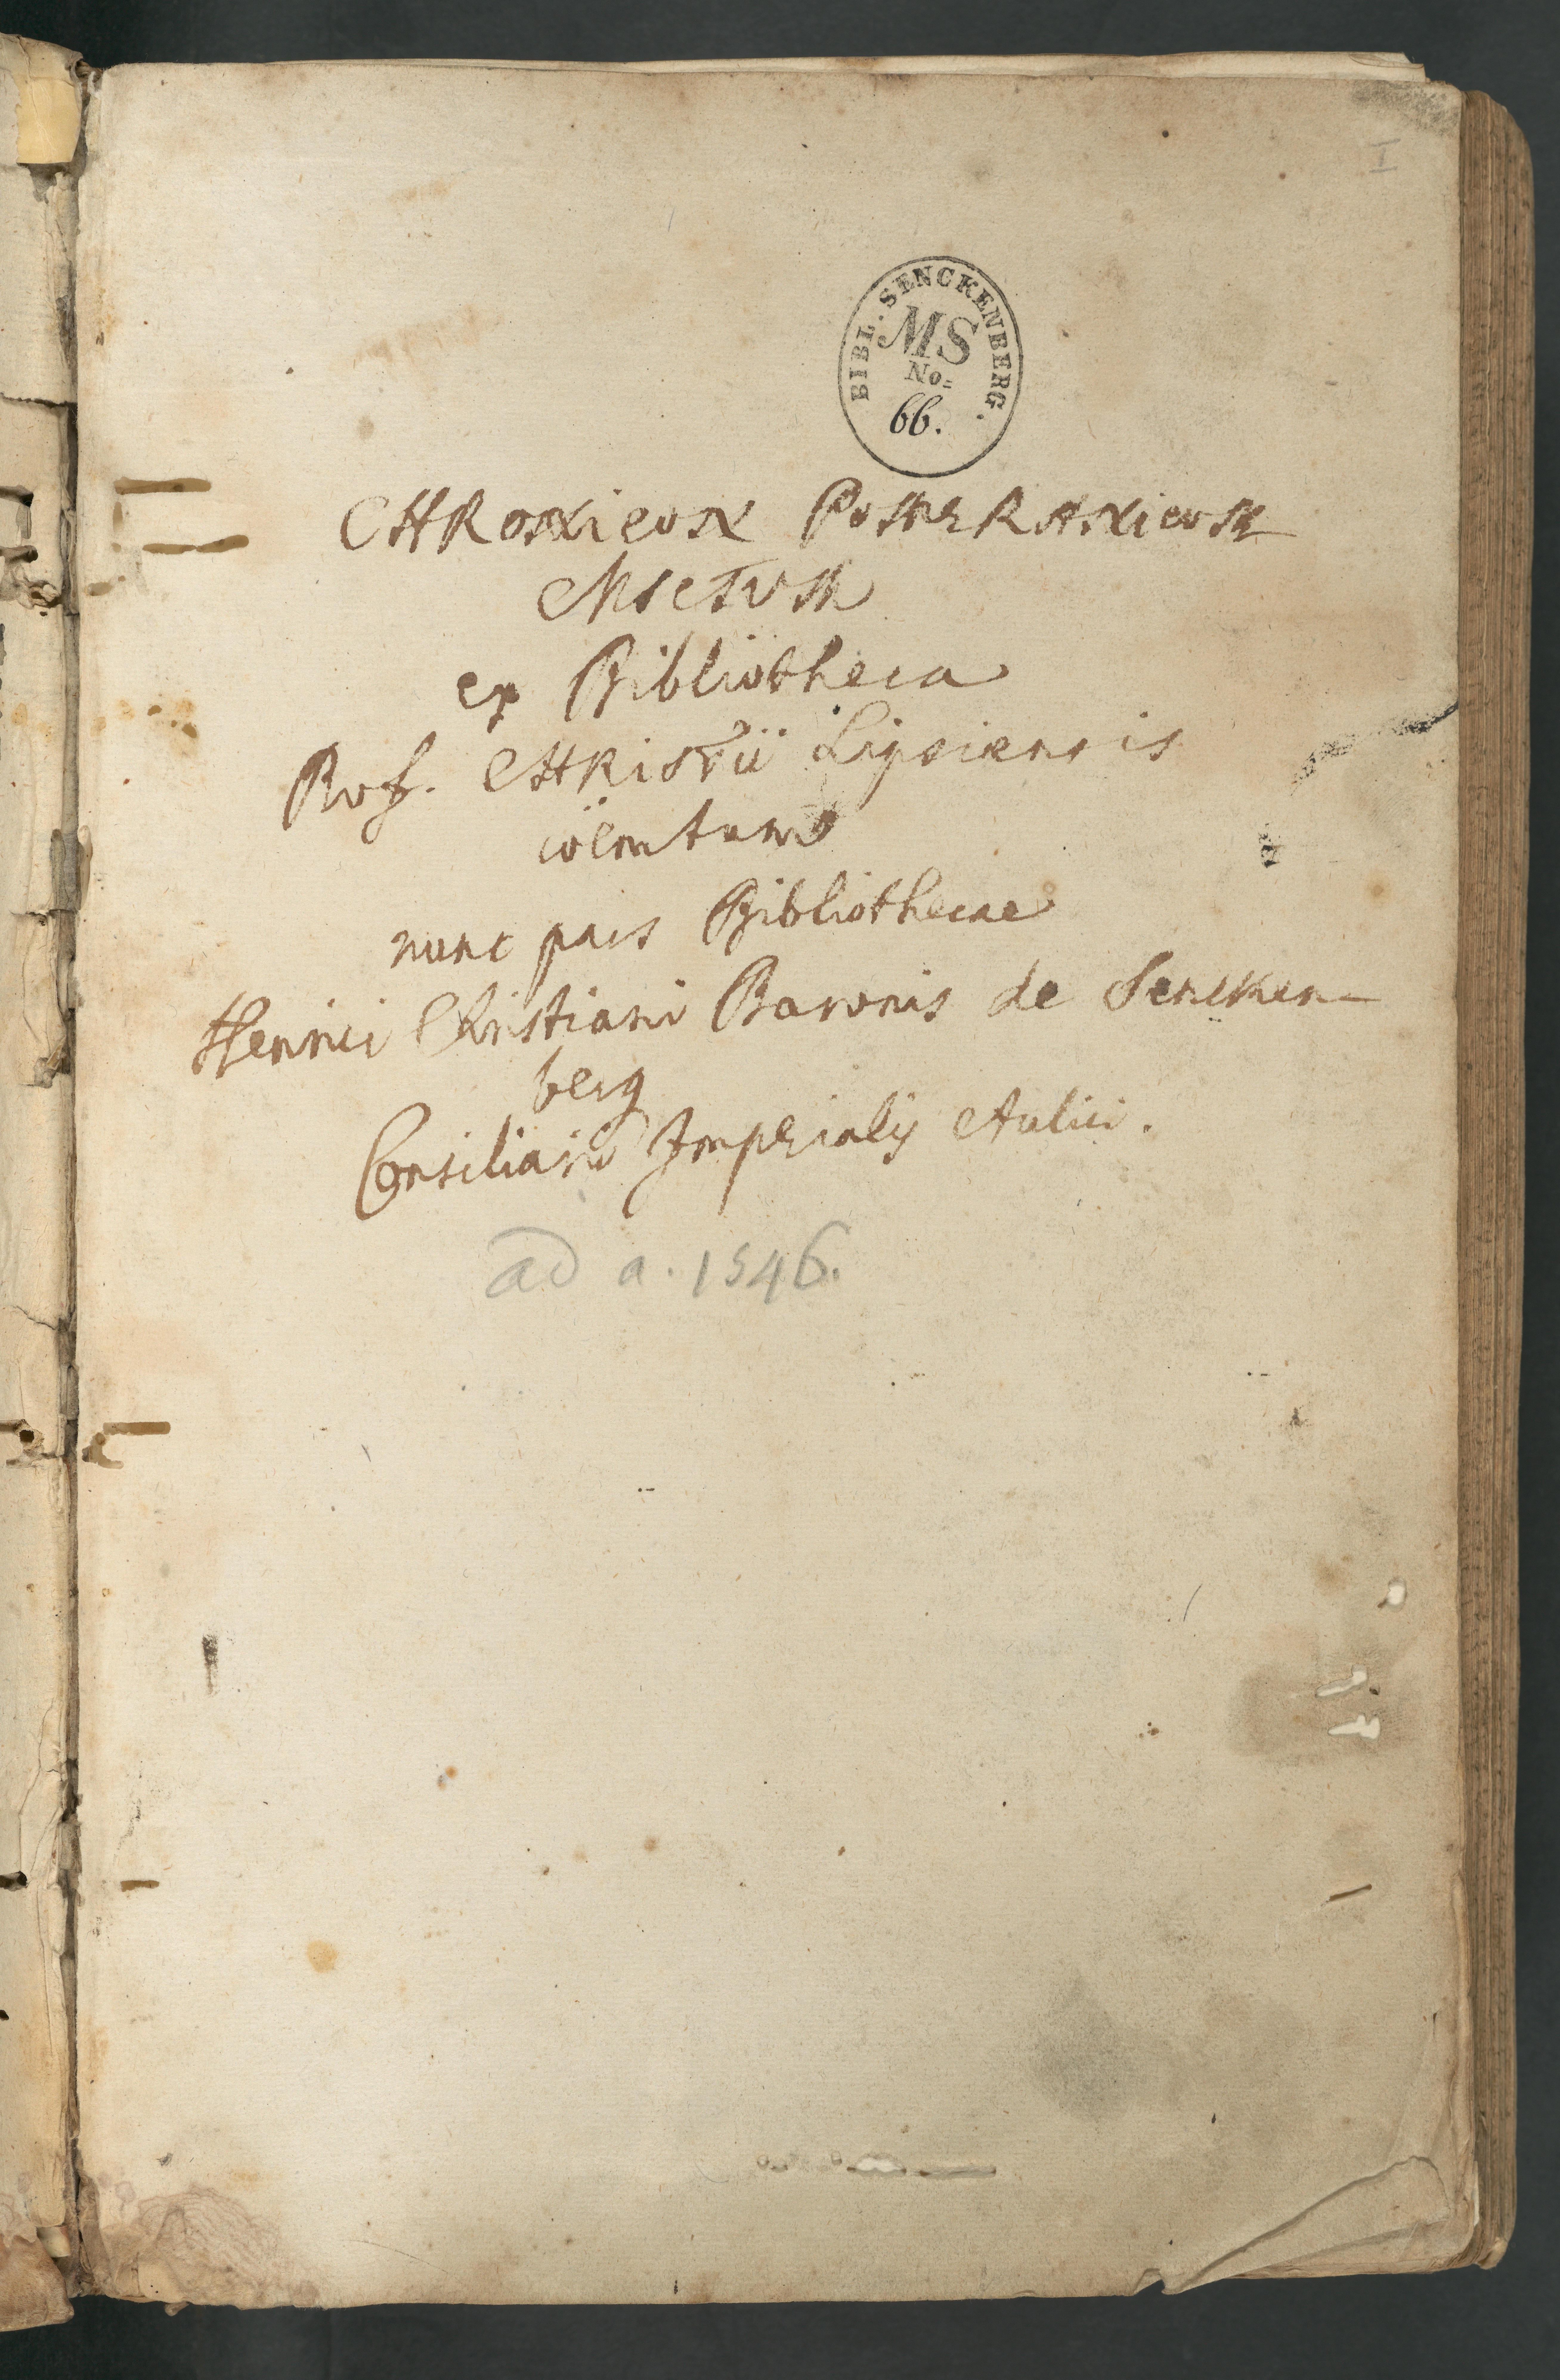 I
BIBL. SENCKENBERG.
MS
No=
66.
CHRONicoN PoMERANicoM
MSCTUM
ex Bibliotheca
Prof. CHRiSTii Lipsiensis
coëmtum
nunc pars Bibliothecae
Henrici Christiani Baronis de Sencken-
berg
Consiliarii Imperialis Aulici.
ad a. 1546.